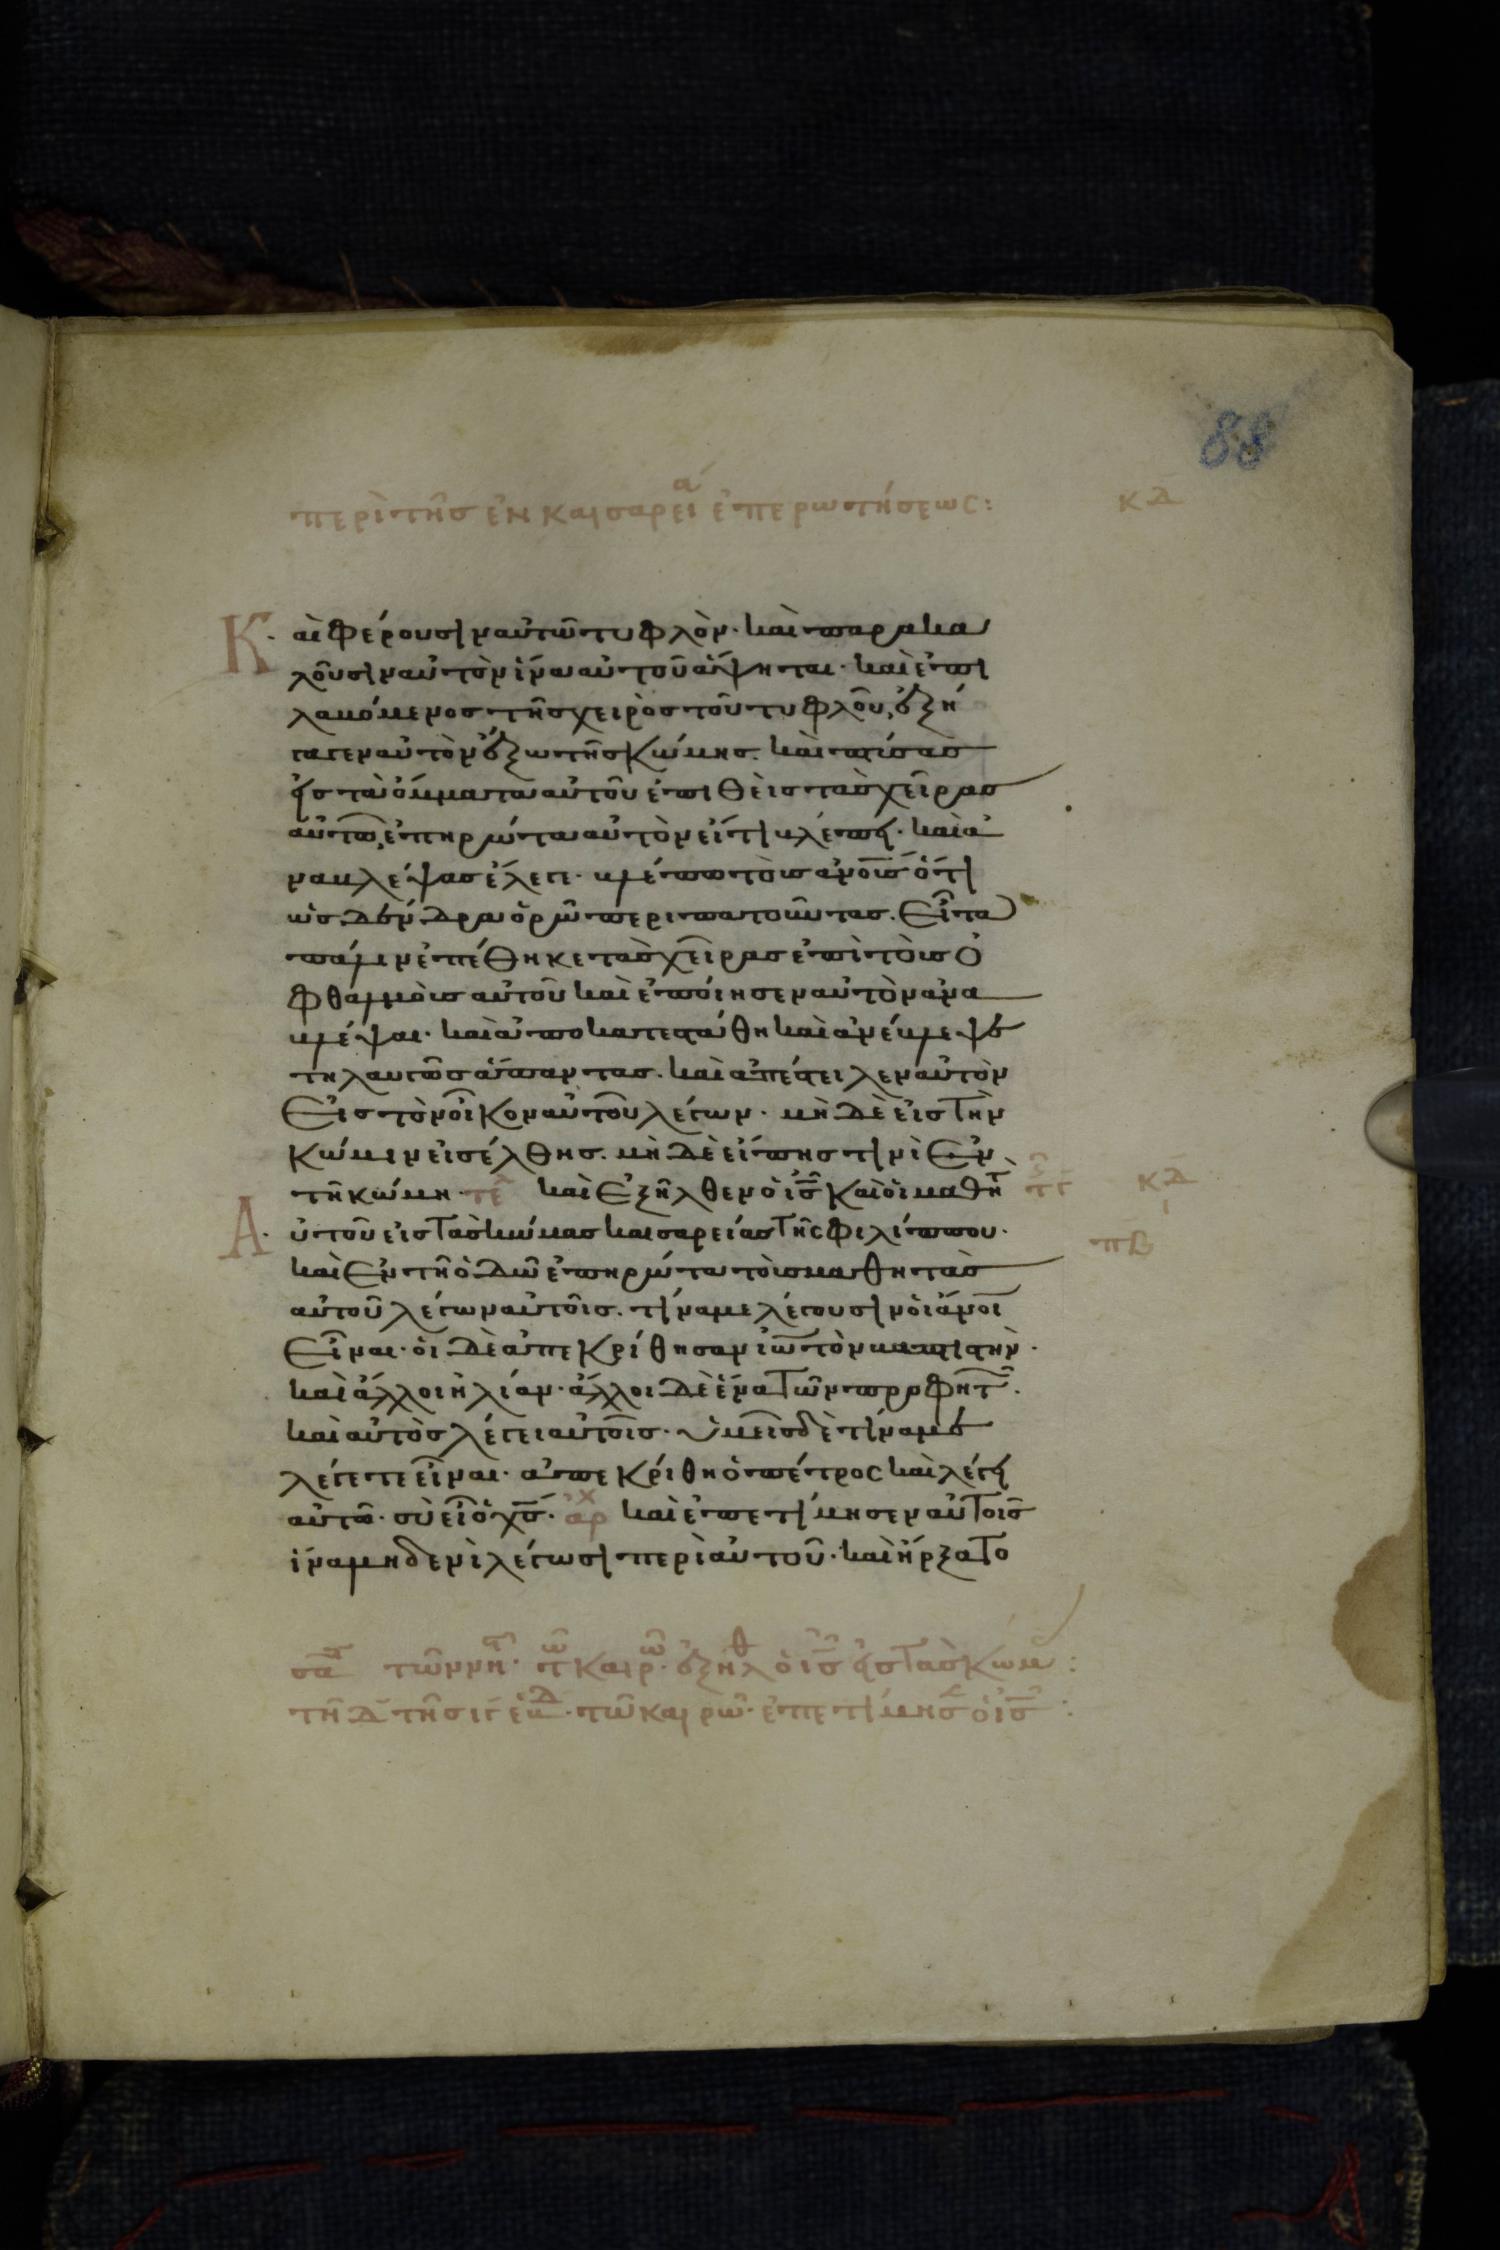 88
περὶ τῆς ἐν καισαρεία ἐπερωτήσεως: κδ
Καὶ φέρουσιν αὐτῶ τυφλὸν· καὶ παρακα
λοῦσιν αὐτὸν ἵνα αὐτοῦ ἅψηται· καὶ ἐπι
λαβόμενος τῆς χειρὸς τοῦ τυφλοῦ, ἐξή
γαγεν αὐτὸν ἔξω τῆς κώμης. καὶ πτύσας
εἰς τὰ ὄμματα αὐτοῦ ἐπιθεὶς τὰς χεῖρας
αὐτῶ, ἐπηρώτα αὐτὸν εἴ τι βλέπει· καὶ ἀ
ναβλέψας ἔλεγε· βλέπω τοὺς ἀνους ὅτι
ὡς δένδρα ὁρῶ περιπατοῦντας. Εἶτα
πάλιν ἐπέθηκε τὰς χεῖρας ἐπὶ τοὺς ὀ
φθαλμοὺς αὐτοῦ καὶ ἐποίησεν αὐτὸν ἀνα
βλέψαι· καὶ ἀποκατεστάθη καὶ ἀνέβλεψε
τηλαυγῶς ἅπαντας. καὶ ἀπέστειλεν αὐτὸν
Εἰς τὸν οἶκον αὐτοῦ λέγων· μὴ δὲ εἰς τὴν
κώμην εἰσέλθης. μὴ δὲ εἴπης τινὶ Ἐν
τῆ κώμη· τε καὶ Ἐξῆλθεν ὁ ις καὶ οἱ μαθητ κδ
Αὐτοῦ εἰς τὰς κώμας καισαρείας τῆς φιλίππου· πβ
καὶ Ἐν τῆ ὁδῶ ἐπηρώτα τοὺς μαθητὰς
αὐτοῦ λέγων αὐτοῖς. τίνα με λέγουσιν οἱ ἄνοι
Εἶναι· οἱ δὲ ἀπεκρίθησαν ἰω τὸν βαπτιστὴν·
καὶ ἄλλοι ἠλίαν· ἄλλοι δὲ ἕνα τῶν προφητ.
καὶ αὐτὸς λέγει αὐτοῖς· ὑμεῖς δὲ τίνα με
λέγετε εἶναι· ἀποκρίθη ὁ πέτρος καὶ λέγει
αὐτῶ· σὺ εἶ ὁ χς· αρχ καὶ ἐπετίμησεν αὐτοῖς
ἵνα μηδενὶ λέγωσι περὶ αὐτοῦ· καὶ ἤρξατο
τῶ καιρῶ· ἐξῆλθ ὁ ις εἰς τὰς κώμ:
τῶ καιρῶ· ἐπετίμησ ὁ ις: